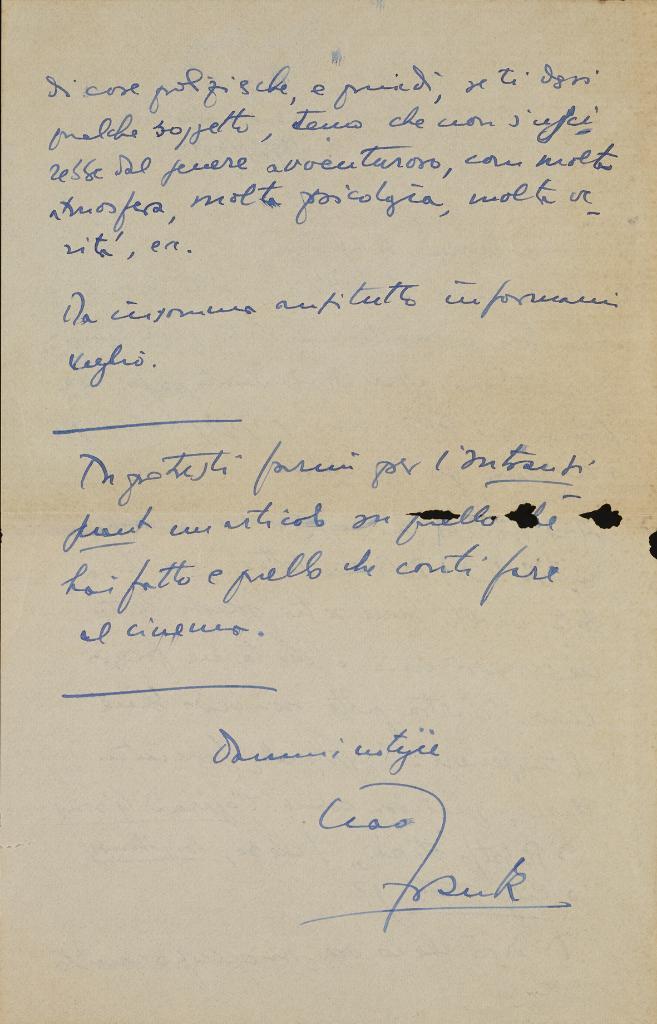 di cose poliziesche, e quindi, se ti dessi
qualche soggetto, temo che non s'usci-
resse dal genere avventuroso, con molta
atmosfera, molta psicologia, molta ve-
rità, ec.
Ma insomma anzitutto informami
meglio.
Mi potresti farmi per l'Intransi
geant un articolo su quello che
hai fatto e quello che conti fare
al cinema.
Dammi notizie
Ciao
Frank